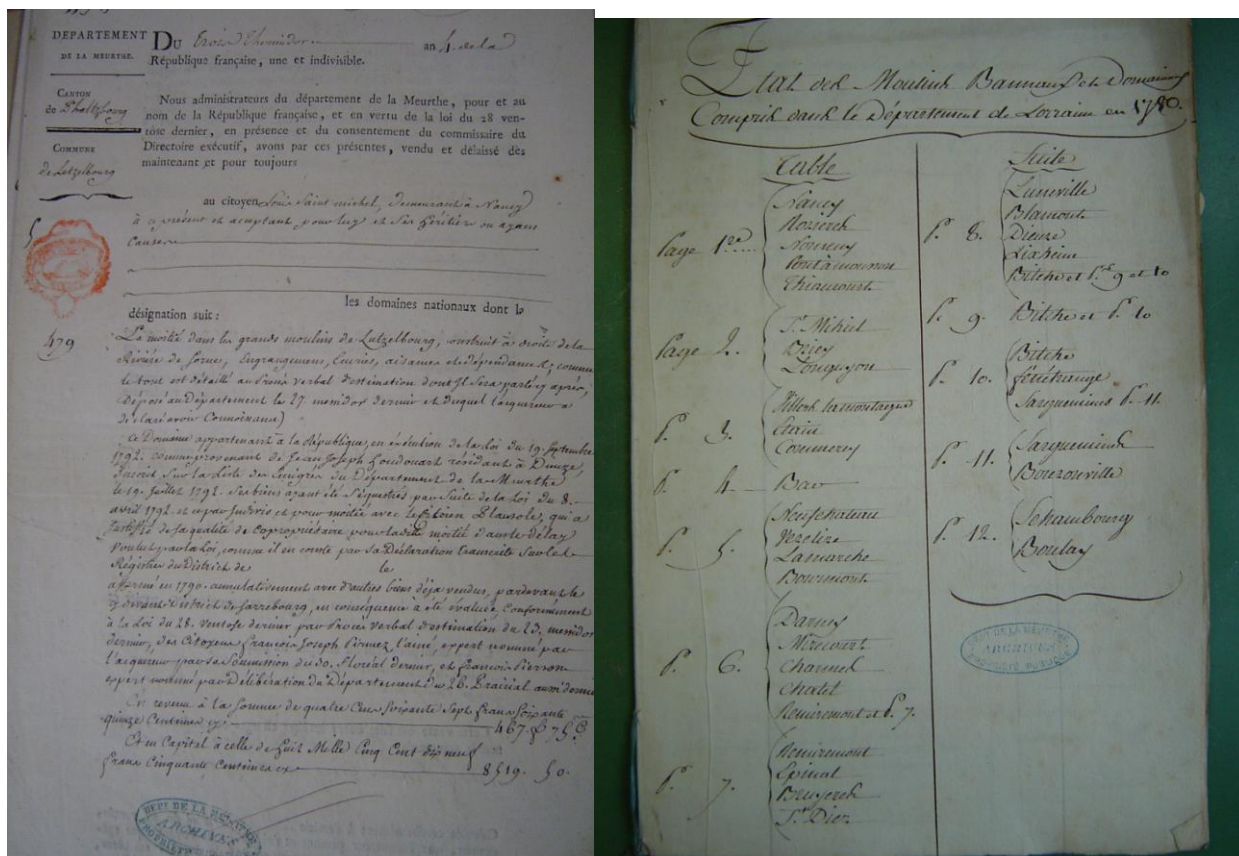 DEPARTEMENT
DE LA MEURTHE.
CANTON
de Phaltzbourg
COMMUNE
de Lutzelbourg
DU trois Thermidor an 4 de la
République française, une et indivisible.
Nous administrateurs du département de la Meurthe, pour et au
nom de la République française, et en vertu de la loi du 28 ven-
tôse dernier, en présence et du consentement du commissaire du
Directoire exécutif, avons par ces présentes, vendu et délaissé dès
maintenant et pour toujours
au citoyen Louis Saint michel, demeurant à Nancy
à ce présent et acceptant, pour luy et ses héritiers ou ayans
Cause
les domaines nationaux dont la
désignation suit :
479
La moitié dans les grands moulins de Lutzelbourg, construit à droite de la
Rivière de Sorne, Engrangemens, Ecuries, aisances et dépendances, comme
le tout est détaillé au Procès verbal d'estimation dont il sera parlé cy après,
déposé au Département le 27 messidor dernier et duquel l'acquéreur a
déclaré avoir Connoissance)
Ce Domaine appartenant à la République, en exécution de la loi du 19 Septembre
1792. comme provenant de Jean Joseph résidant à Dieuze,
Inscrit sur la Liste des Emigrés du Département de la Meurthe
le 19. Juillet 1792. Ses biens ayant été séquestrés par suite de la loi du 8.
avril 1792. et est par Indivis et pour moitié avec le Citoyen Plausole, qui a
justifié de sa qualité de Copropriétaire pour ladite moitié dans le délay
voulu par la loi, comme il en conste par sa Déclaration transcrite sur les
Régistres du District de le
affermé en 1790. cumulativement avec d'autres biens déja vendus, pardevant le
cy devant District de Sarrebourg, en conséquence a été évalué Conformément
à la Loi du 28. Ventose dernier par Procès verbal d'estimation du 23. messidor
dernier, des Citoyens François Joseph l'ainé, expert nommé par
l'acquereur par sa Soumission du 30. Floréal dernier, et François Pierron
expert nommé par Délibération du Département du 28. Prairial aussi dernier
En revenu à la Somme de quatre Cens Soixante Sept francs Soixante
quinze Centimes cy 467.f 75.c
Et en Capital à celle de huit Mille Cinq Cent dix neuf
francs Cinquante Centimes cy 8519. 50.
DEPT DE LA MEURTHE
ARCHIVES
Etat des Moulins Bannaux et Domaines
Compris dans le Département de Lorraine en 1780.
Table
Page 1re
Nancy
Rozieres
Nomeny
Pont à mousson
Thiaucourt
Page 2.
St. Mihiel
Briey
Longuyon
P. 3.
Villers la montagne
Etain
Commercy
P. 4
Bar
P. 5.
Neufchateau
Vezelize
Lamarche
Bourmont
P. 6.
Darney
Mirecourt
Charmes
Chatel
Remiremont et P. 7.
P. 7.
Remiremont
Epinal
Bruyeres
St. Diez
Suite
P. 8.
Luneville
Blamont
Dieuze
Lixheim
Bitche et P.s 9 et 10
P. 9.
Bitche et P. 10
P. 10.
Bitche
fenétrange
Sarguemines P. 11.
P. 11.
Sarguemines
Bouzonville
P. 12.
Schambourg
Boulay
DEPT DE LA MEURTHE
ARCHIVES